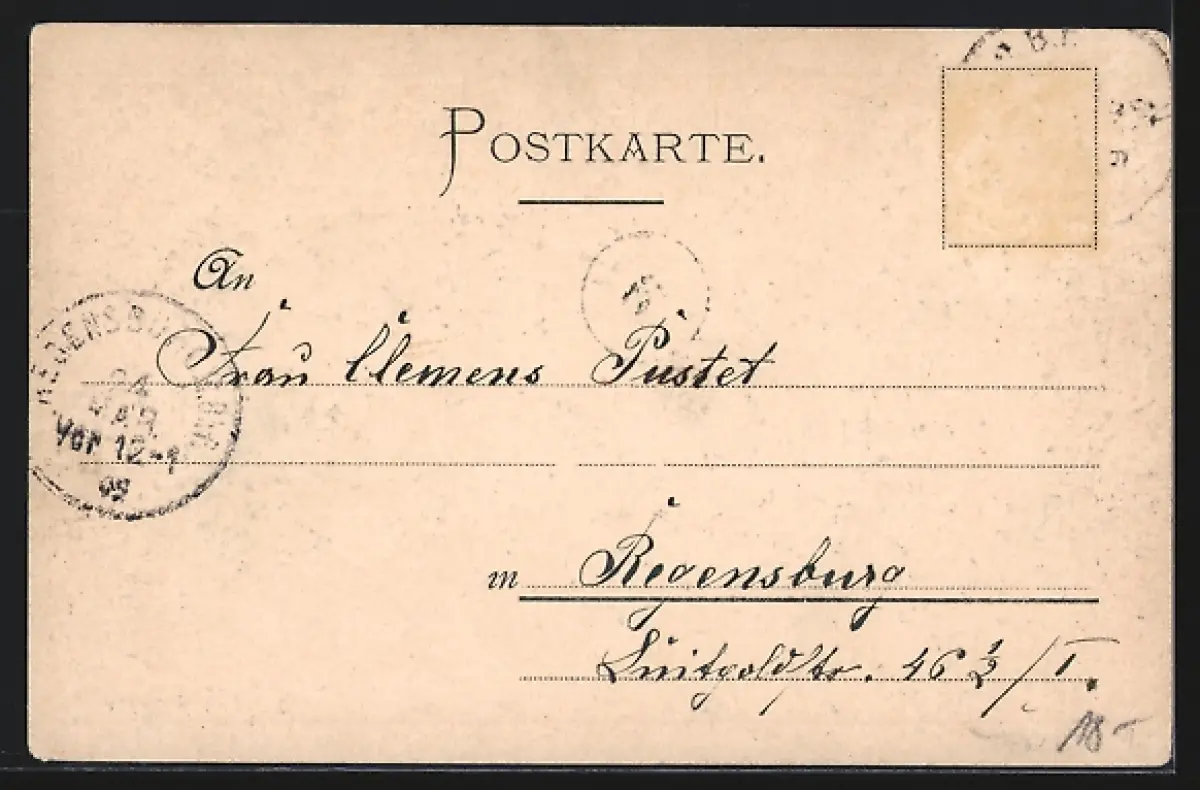 POSTKARTE.
An
Frau Clemens Pustet
in Regensburg
Luitpoldstr. 16 ½ / I.
REGENSBURG
24
MAR
Vor 12-1
99
18-